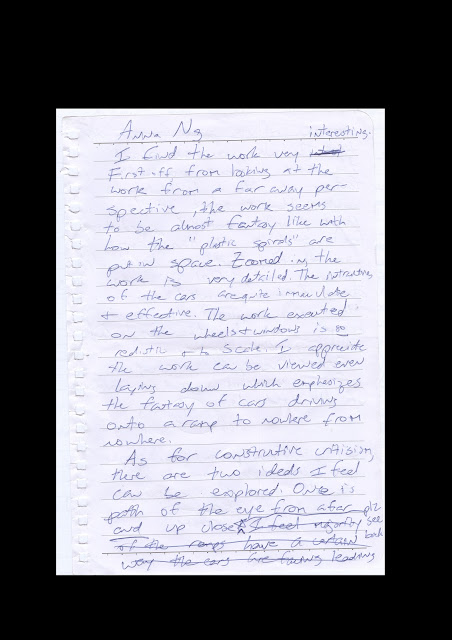 Anna Ng
interesting.
I find the work very
First off, from looking at the
work from a far away per-
spective, the work seems
to be almost fantasy like with
how the "plastic spirals" are
put in space. Zoomed in, the
work is very detailed. The intricacies
of the cars are quite immaculate
+ effective. The work executed
on the wheels + windows is so
realistic + to scale. I appreciate
the work can be viewed even
laying down which emphesizes
the fantasy of cars driving
onto a ramp to nowhere from
nowhere.
As for constructive critisism,
there are two ideas I feel
can be explored. One is
path of the eye from afar plz
and up close. I feel majority see
of the ramps have a certain back
way the cars are facing leading